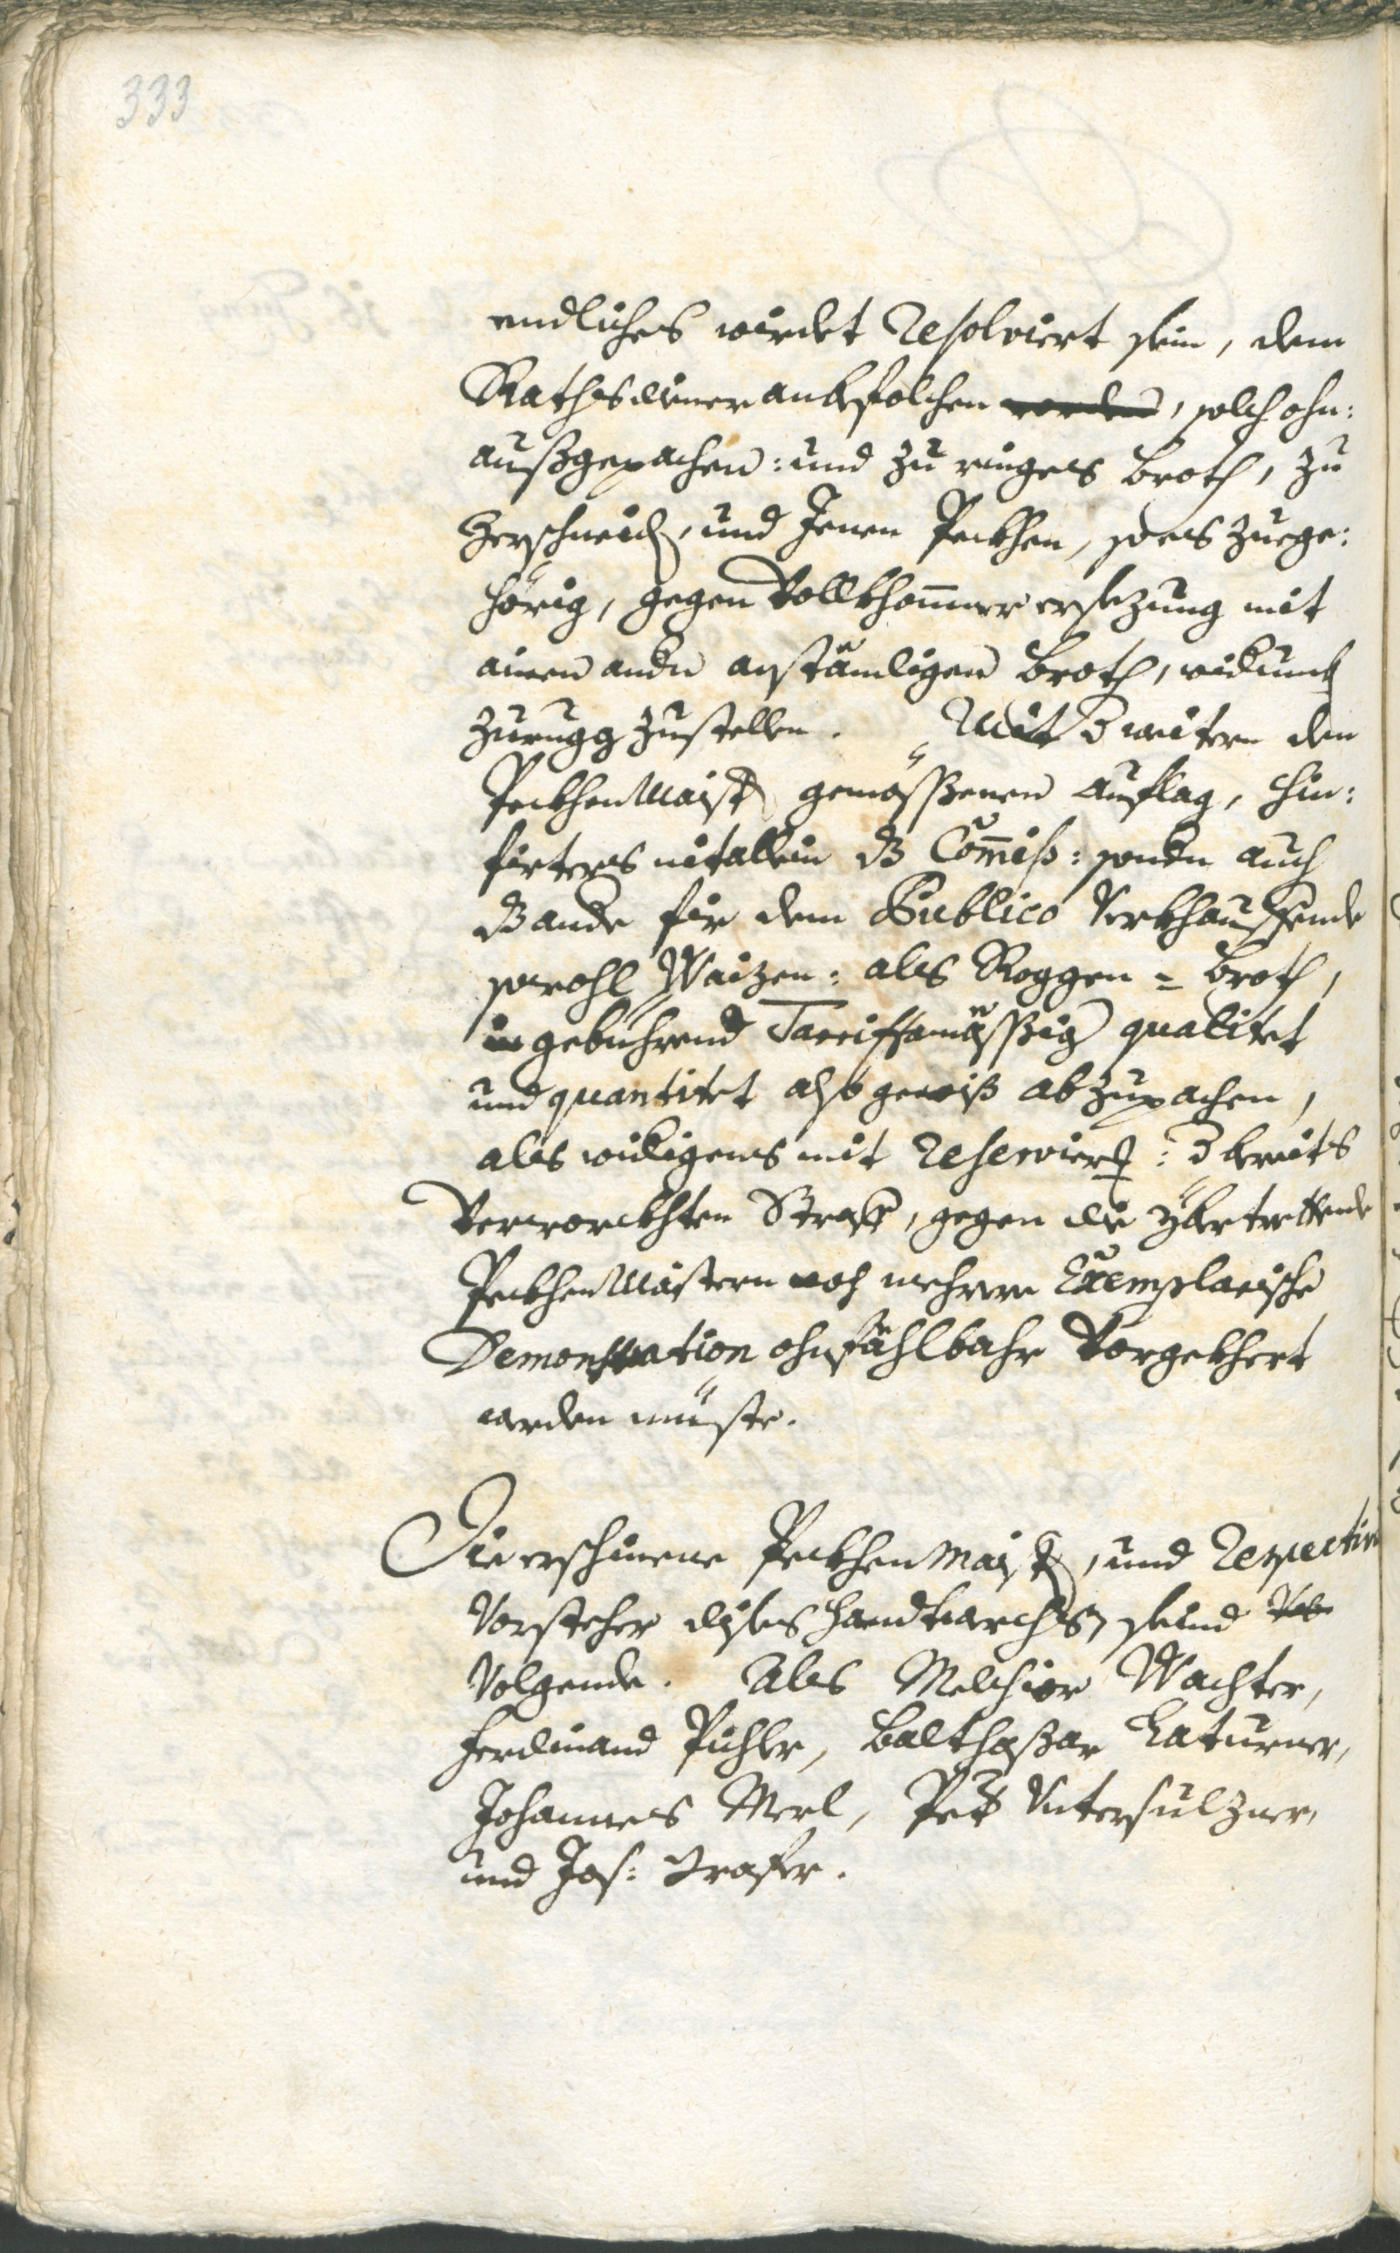 333
endliches würdet Resolviert sein, dem
Rathsdiener anbefolchen worden, solch ohn:
außgepachen: und zu ringes Broth, zu
Zerschneiden, und Jenen Peckhen, so es zuege:
hörig, gegen Vollkhommer ersezung mit
ainen andern anstämligen Broth, widerumb
Zurugg Zustellen. Mit dem weitern den
Peckhen Maistern gemössenen Auflag, hin:
fürters nit allein das Commiss: sondern auch
das andere für dem Publico Verkhauffende
sowohl Waizen: als Roggen = Broth,
in gebührend Tariffsmässig qualitet
und quantitet also gewiß abzupachen,
als widrigens mit Reservierung der bereits
Verworchten Straff, gegen die ybertrettende
Peckhen Maistern noch mehrere Exemplarische
Demonstration ohnfählbahr Vorgekhert
werden müste.
Die erschinene Peckhen Maister, und Respective
Vorsteher dises Handtwerchs, seind
Volgende. Als Melchior Wachter,
Ferdinand Pichler, Balthasar Laturner,
Johannes Merl, Peter Untersulzner,
und Jos: Trafer.